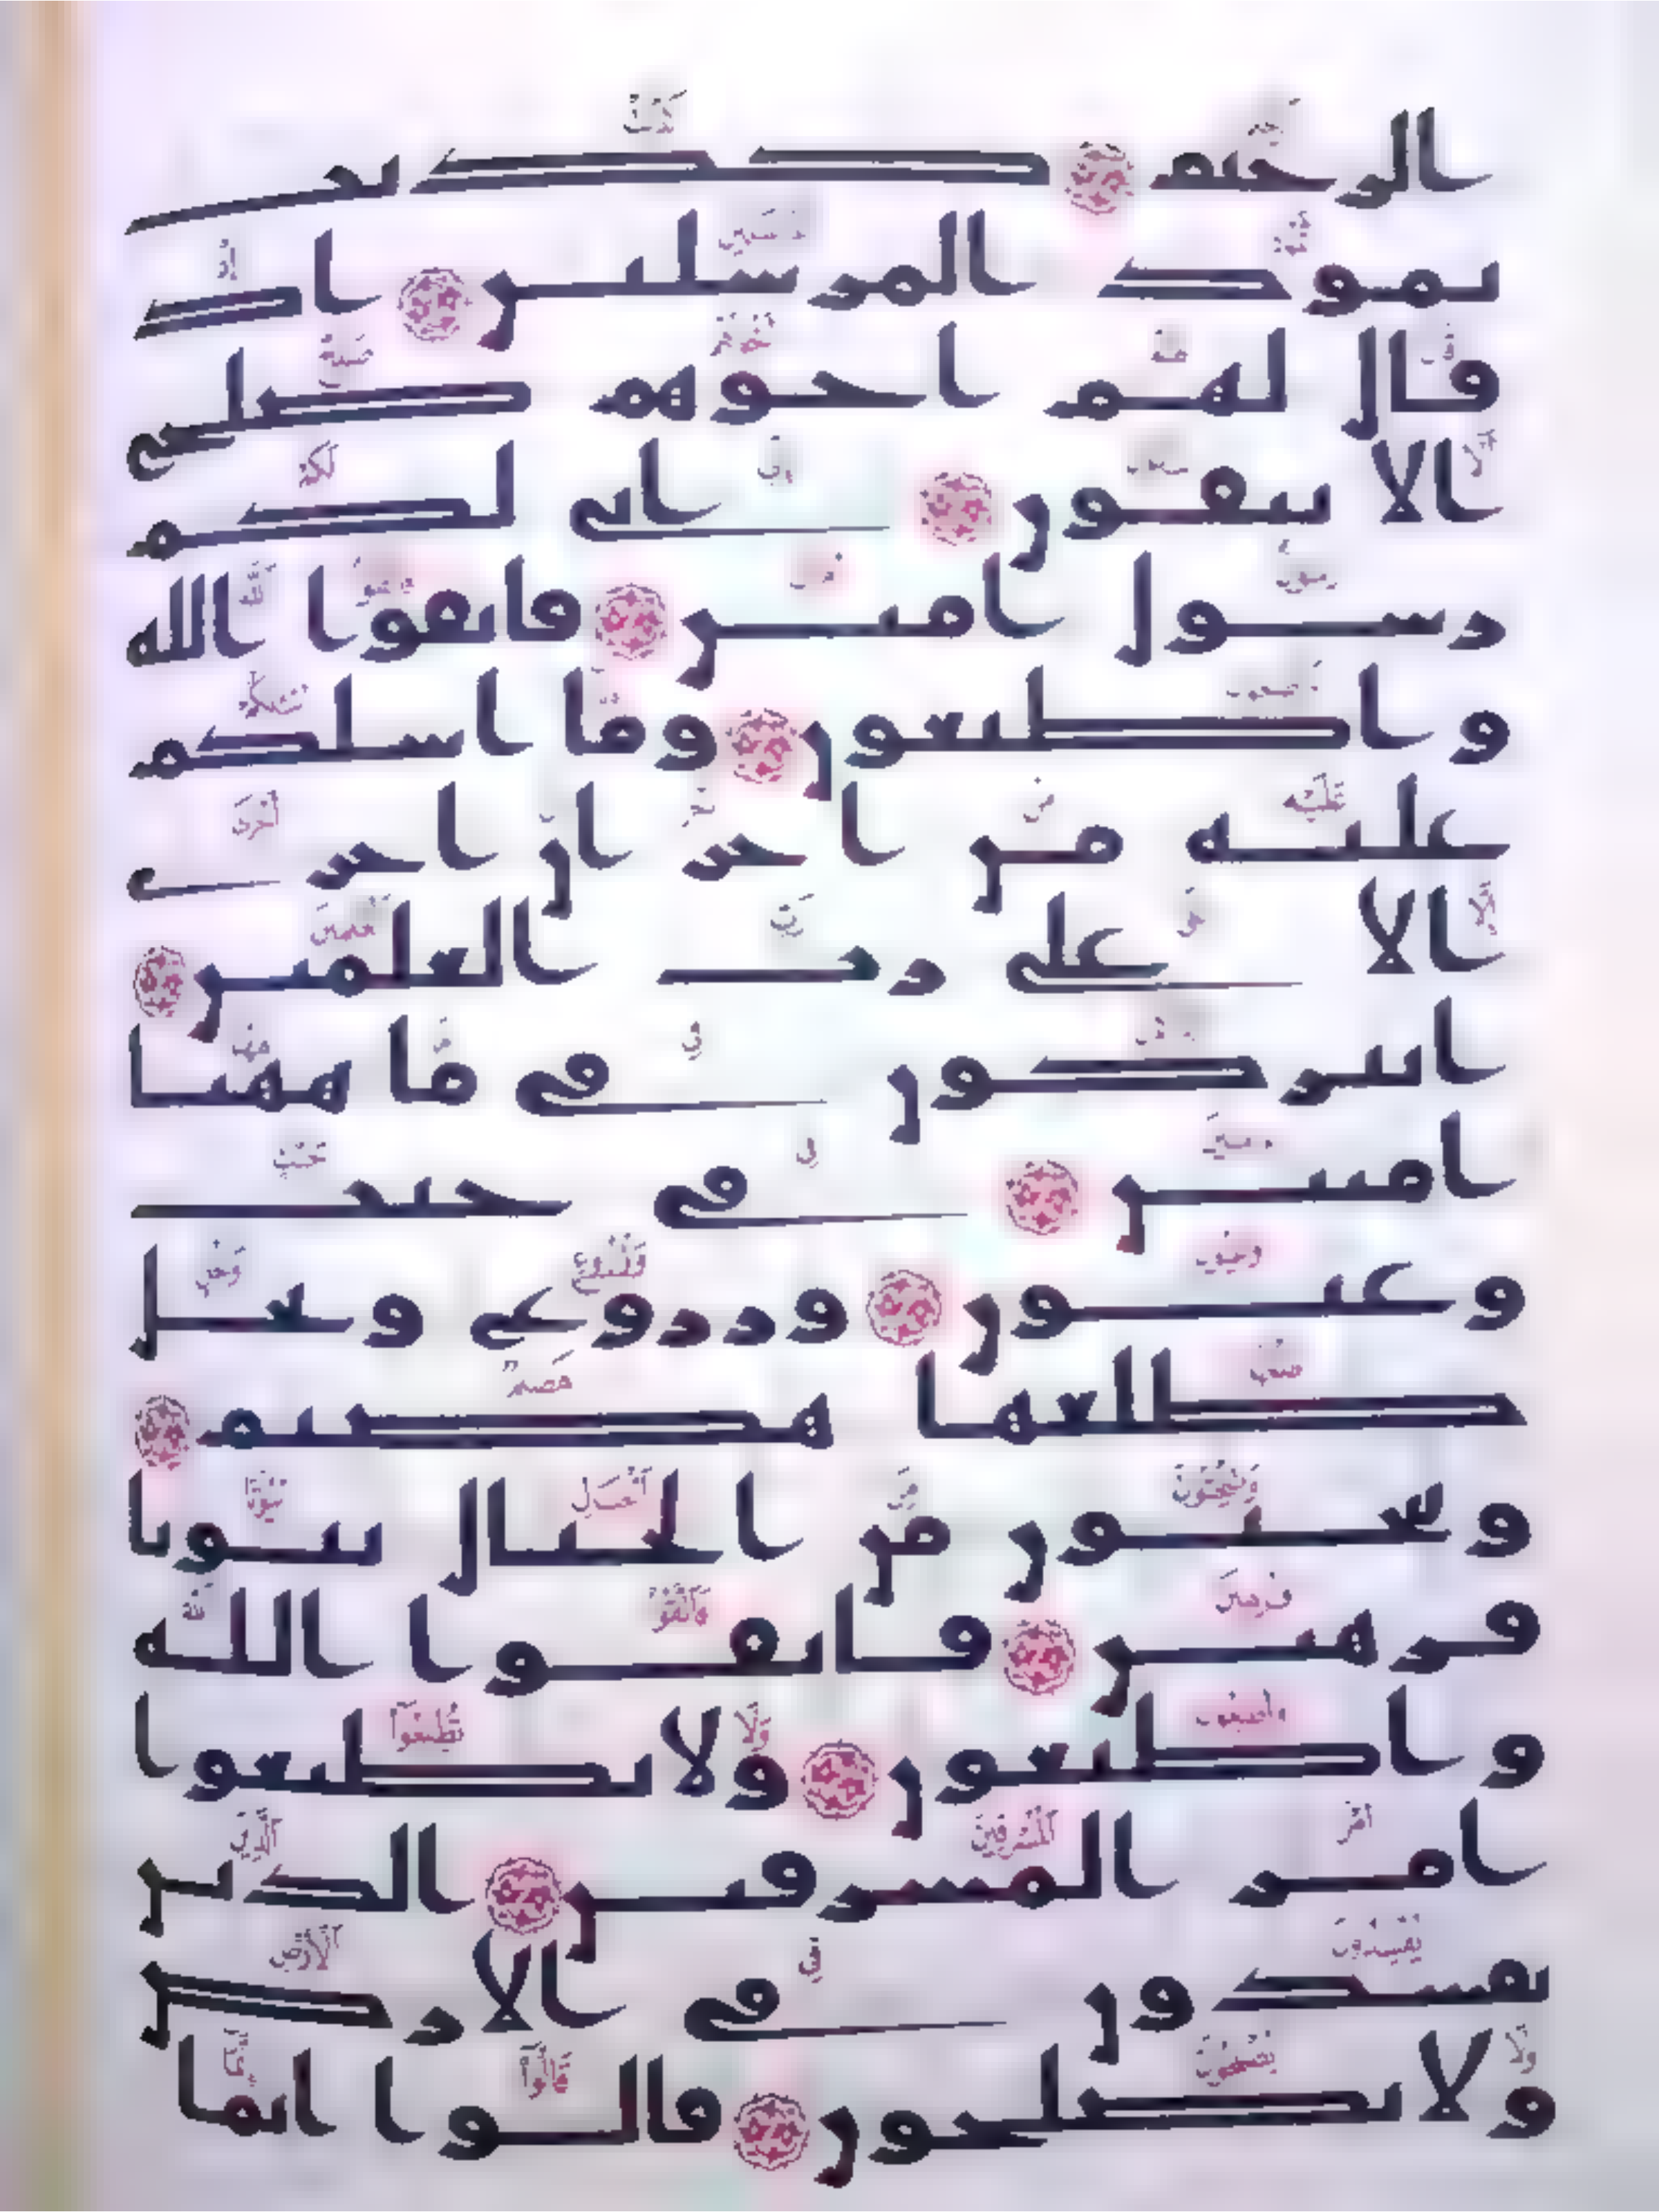 الرحيم كذبت
ثمود المرسلين اذ
قال لهم اخوهم صلح
الا تتقون اني لكم
رسول امين فاتقوا الله
واطيعون وما اسلكم
عليه من اجر ان اجري
الا على رب العلمين
اتتركون في ما ههنا
امنين في جنت
وعيون وزروع ونخل
طلعها هضيم
وتنحتون من الجبال بيوتا
فرهين فاتقوا الله
واطيعون ولا تطيعوا
امر المسرفين الذين
يفسدون في الارض
ولا يصلحون قالوا انما